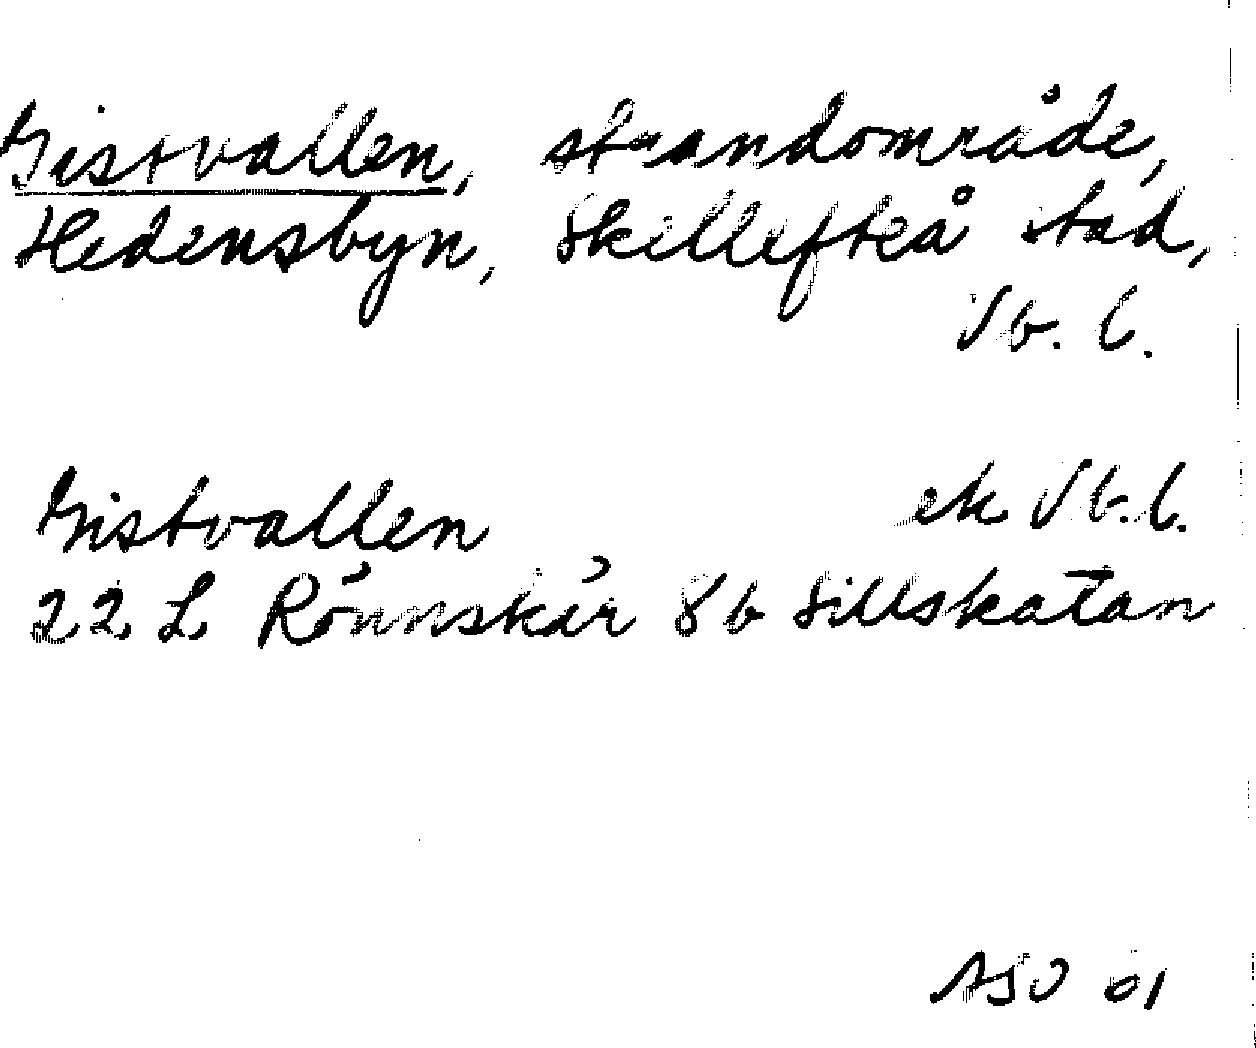 Gistvallen, strandområde,
Hedensbyn, Skellefteå stad,
Vb. l.
Gistvallen ek Vb. l.
22 L Rönnskär 8b Sillskatan